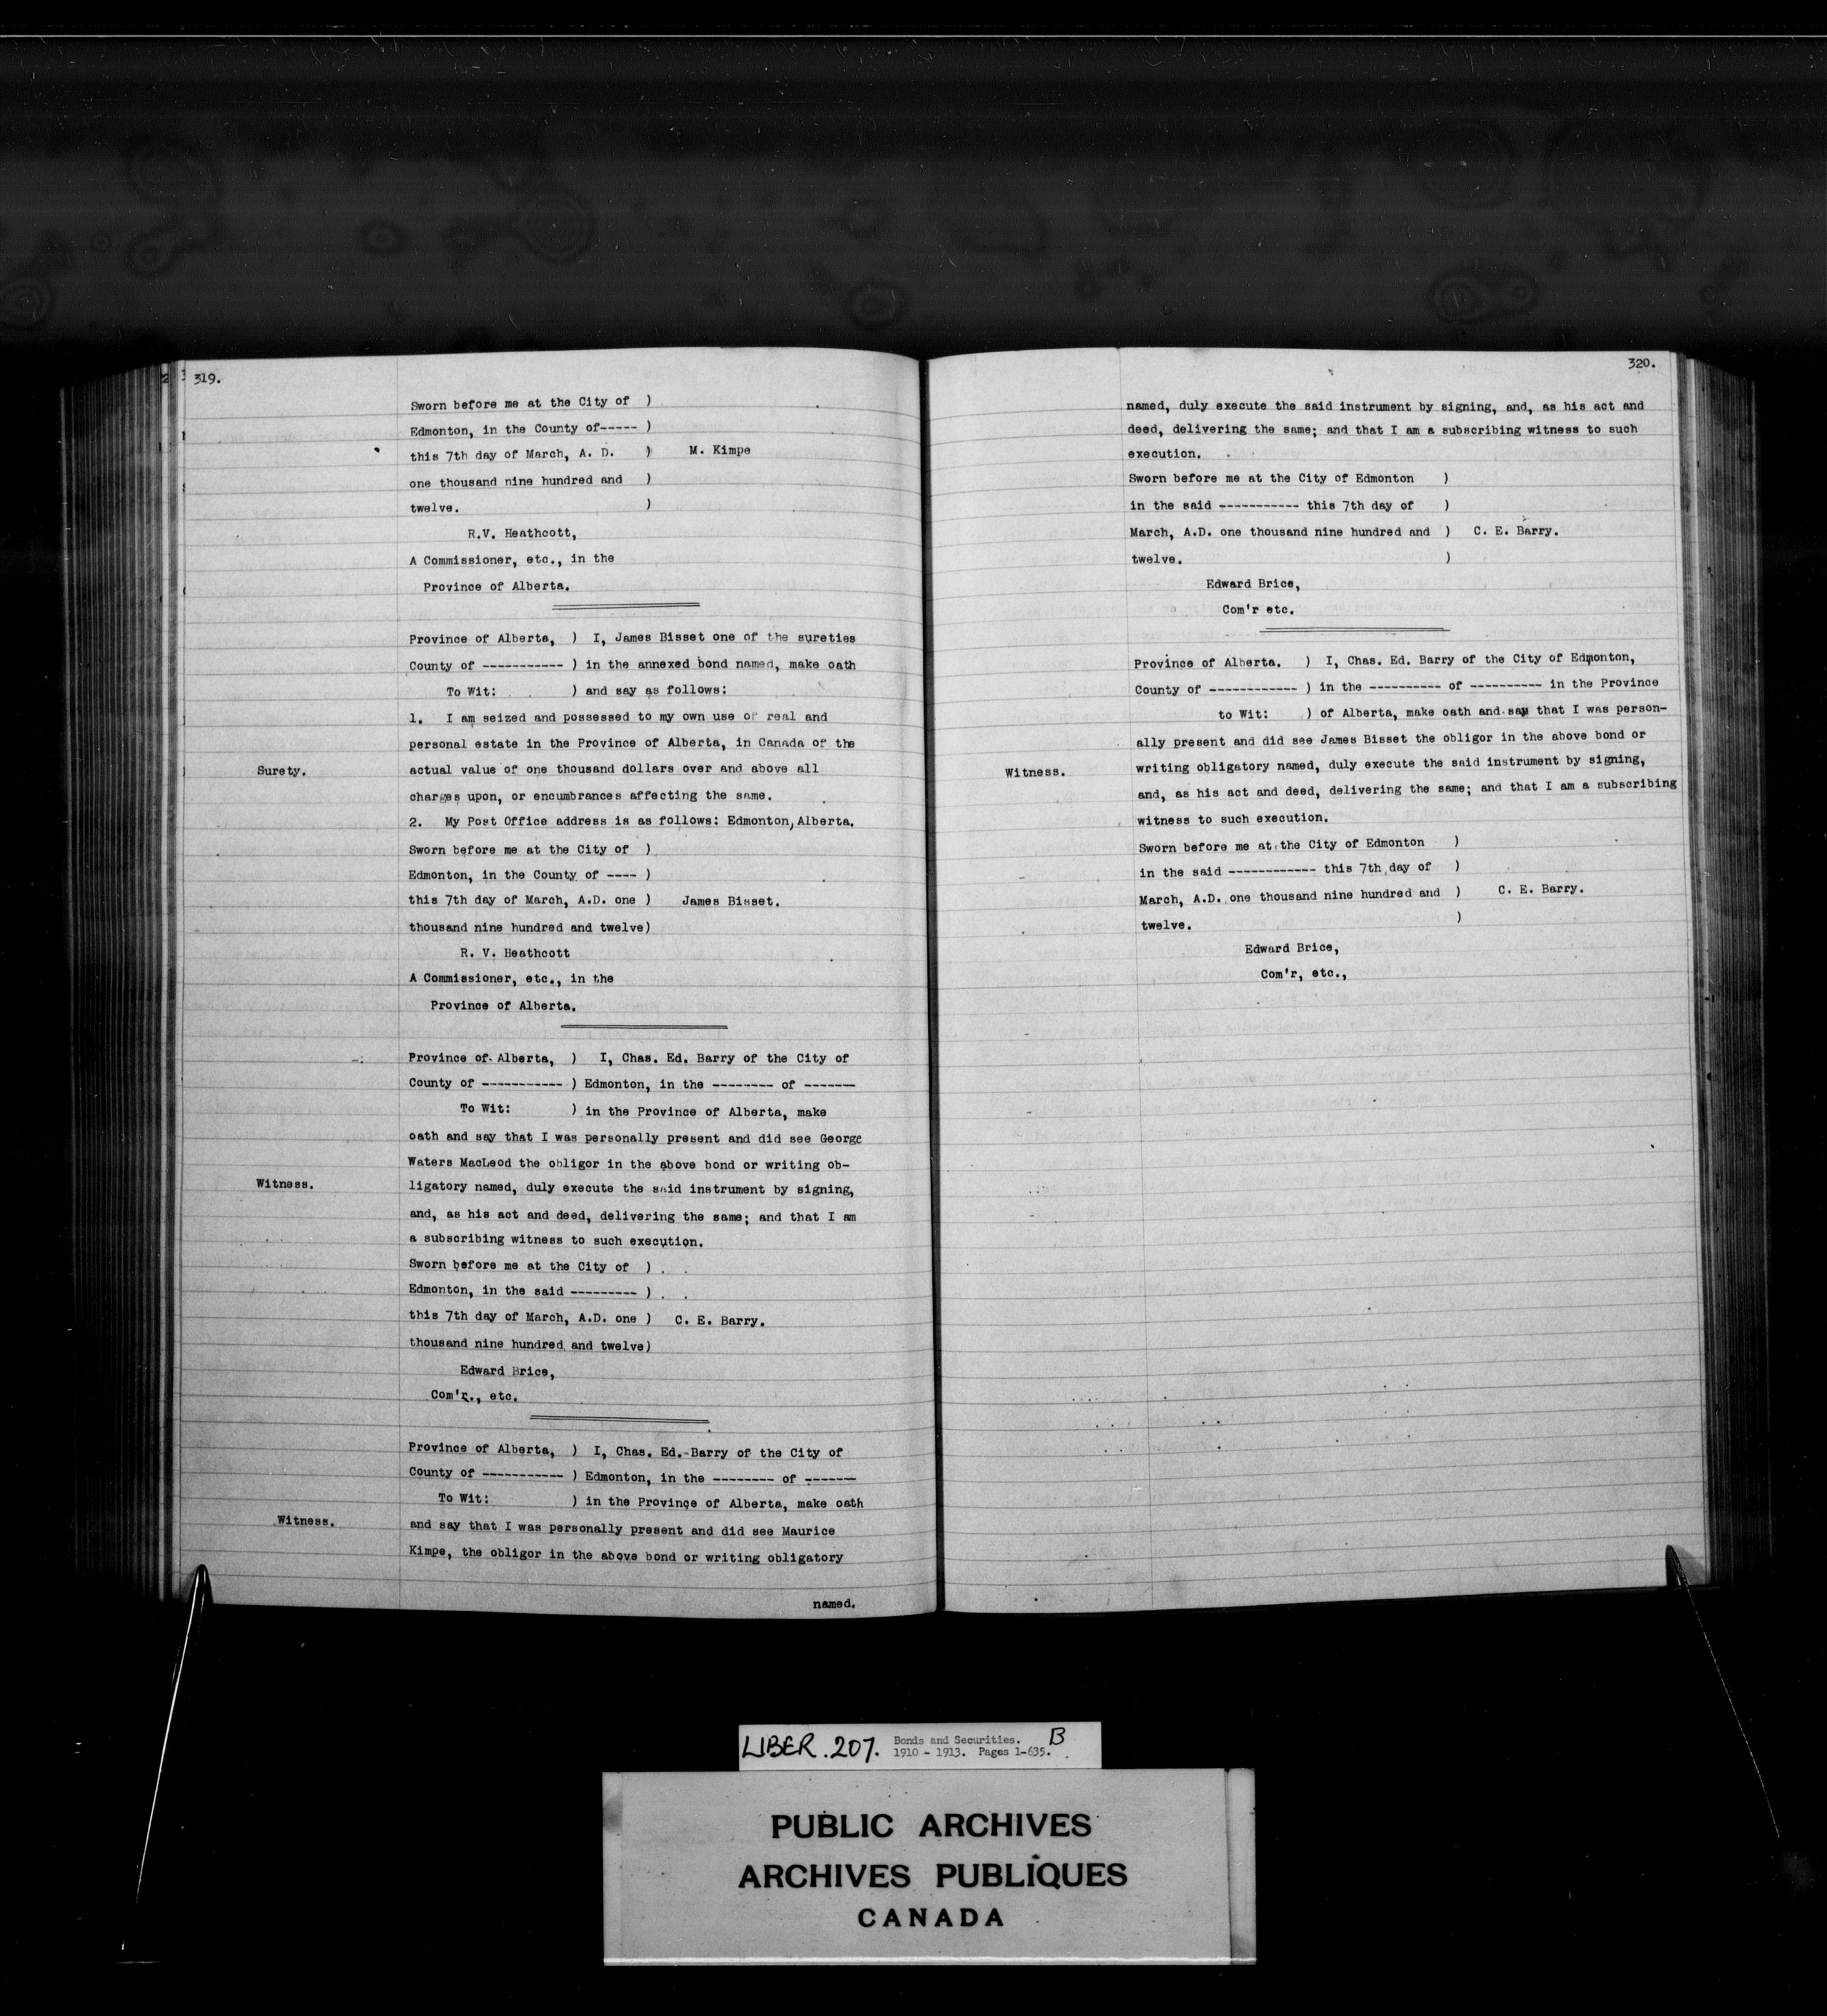 319.
Sworn before me at the City of )
Edmonton, in the County of----- )
this 7th day of March, A. D. ) M. Kimpe
one thousand nine hundred and )
twelve. )
R.V. Heathcott,
A Commissioner, etc., in the
Province of Alberta.
Province of Alberta, ) I, James Bisset one of the sureties
County of ----------- ) in the annexed bond named, make oath
To Wit: ) and say as follows:
1. I am seized and possessed to my own use of real and
personal estate in the Province of Alberta, in Canada of the
Surety. actual value of one thousand dollars over and above all
charges upon, or encumbrances affecting the same.
2. My Post Office address is as follows: Edmonton, Alberta.
Sworn before me at the City of )
Edmonton, in the County of ---- )
this 7th day of March, A.D. one ) James Bisset.
thousand nine hundred and twelve)
R. V. Heathcott
A Commissioner, etc., in the
Province of Alberta.
Province of Alberta, ) I, Chas. Ed. Barry of the City of
County of ----------- ) Edmonton, in the -------- of -------
To Wit: ) in the Province of Alberta, make
oath and say that I was personally present and did see George
Waters MacLeod the obligor in the above bond or writing ob-
Witness. ligatory named, duly execute the said instrument by signing,
and, as his act and deed, delivering the same; and that I am
a subscribing witness to such execution.
Sworn before me at the City of )
Edmonton, in the said --------- )
this 7th day of March, A.D. one ) C. E. Barry.
thousand nine hundred and twelve)
Edward Brice,
Com'r., etc.
Province of Alberta, ) I, Chas. Ed. Barry of the City of
County of ----------- ) Edmonton, in the -------- of -------
To Wit: ) in the Province of Alberta, make oath
Witness. and say that I was personally present and did see Maurice
Kimpe, the obligor in the above bond or writing obligatory
named.
320.
named, duly execute the said instrument by signing, and, as his act and
deed, delivering the same; and that I am a subscribing witness to such
execution.
Sworn before me at the City of Edmonton )
in the said ----------- this 7th day of )
March, A.D. one thousand nine hundred and ) C. E. Barry.
twelve. )
Edward Brice,
Com'r etc.
Province of Alberta. ) I, Chas. Ed. Barry of the City of Edmonton,
County of ------------ ) in the ---------- of ---------- in the Province
to Wit: ) of Alberta, make oath and say that I was person-
ally present and did see James Bisset the obligor in the above bond or
Witness. writing obligatory named, duly execute the said instrument by signing,
and, as his act and deed, delivering the same; and that I am a subscribing
witness to such execution.
Sworn before me at the City of Edmonton )
in the said ------------ this 7th day of )
March, A.D. one thousand nine hundred and ) C. E. Barry.
twelve. )
Edward Brice,
Com'r, etc.,
LIBER. 207. Bonds and Securities. B
1910 - 1913. Pages 1-635.
PUBLIC ARCHIVES
ARCHIVES PUBLIQUES
CANADA